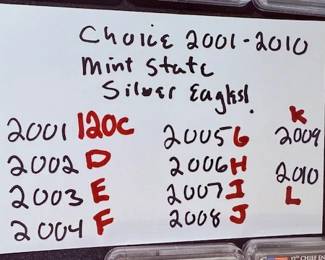 Choice 2001-2010
Mint State
Silver Eagles!
2001 120C
2002 D
2003 E
2004 F
2005 G
2006 H
2007 I
2008 J
K
2009
2010
L